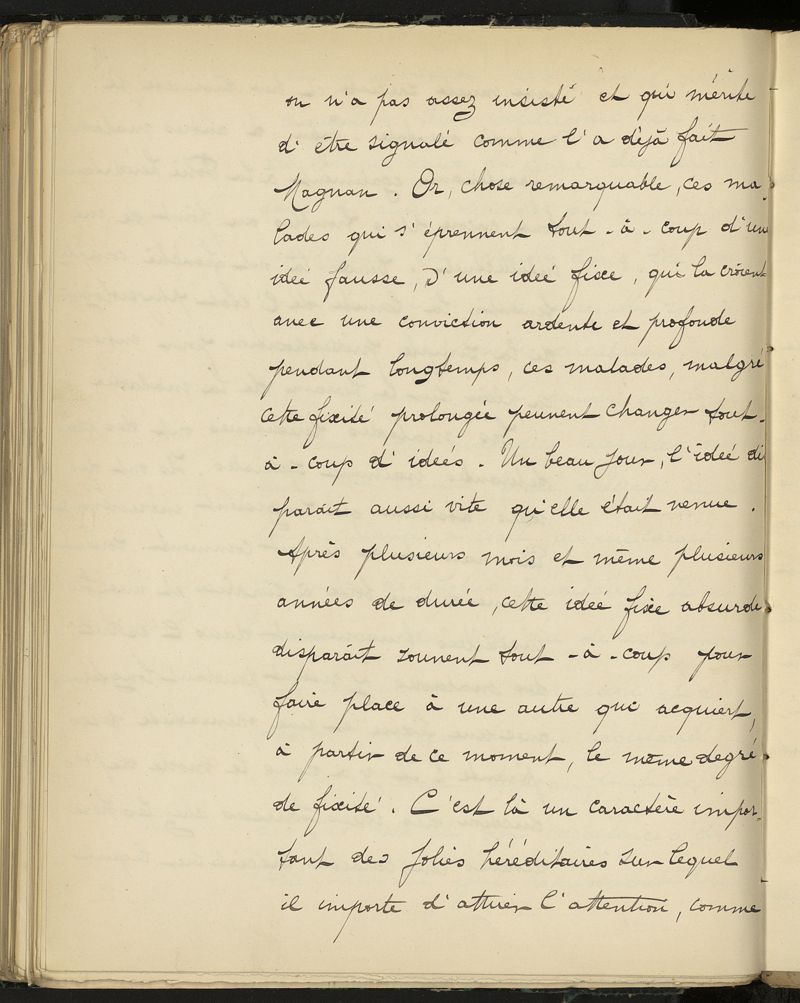 on n'a pas assez insisté et qui mérite
d'être signalé comme l'a déjà fait
Magnan. Or, chose remarquable, ces ma-
lades qui s'éprennent tout-à-coup d'une
idée fausse, d'une idée fixe, qui la croient
avec une conviction ardente et profonde
pendant longtemps, ces malades, malgré
cette fixité prolongée peuvent changer tout-
à-coup d'idées. Un beau jour, l'idée dis
paraît aussi vite qu'elle était venue.
Après plusieurs mois et même plusieurs
années de durée, cette idée fixe absurde
disparaît souvent tout-à-coup pour
faire place à une autre qui acquiert,
à partir de ce moment, le même degré
de fixité. C'est là un caractère impor-
tant des folies héréditaires sur lequel
il importe d'attirer l'attention, comme